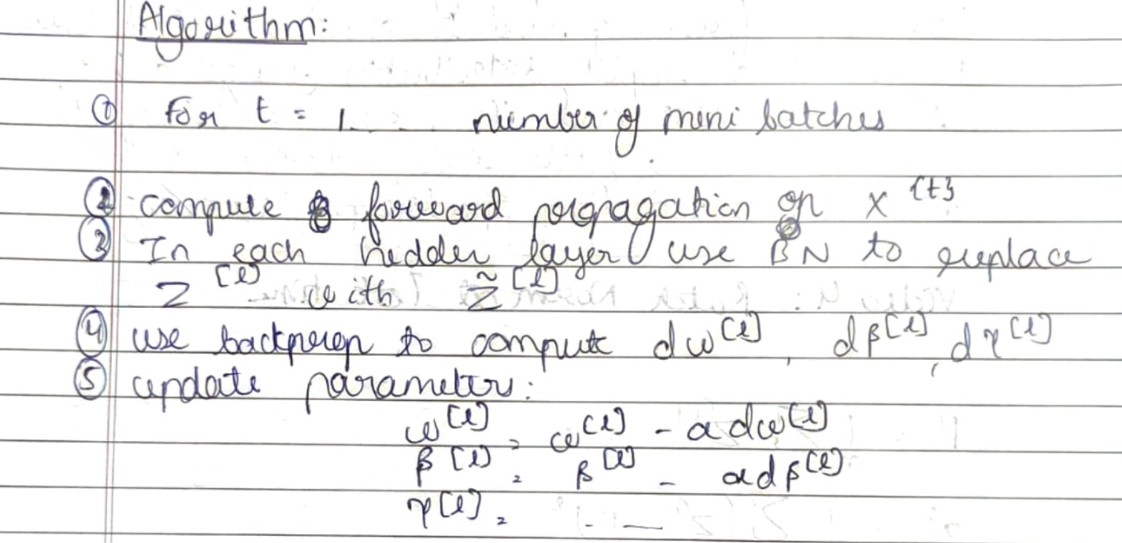 Algorithm:
① for t = 1 . . . number of mini batches
② compute forward propagation on x^{t}
③ In each hidden layer use BN to replace
z^[l] with z̃^[l]
④ use backprop to compute dω^[l], dβ^[l], dγ^[l]
⑤ update parameter:
ω^[l] = ω^[l] - αdω^[l]
β^[l] = β^[l] - αdβ^[l]
γ^[l] = . — .